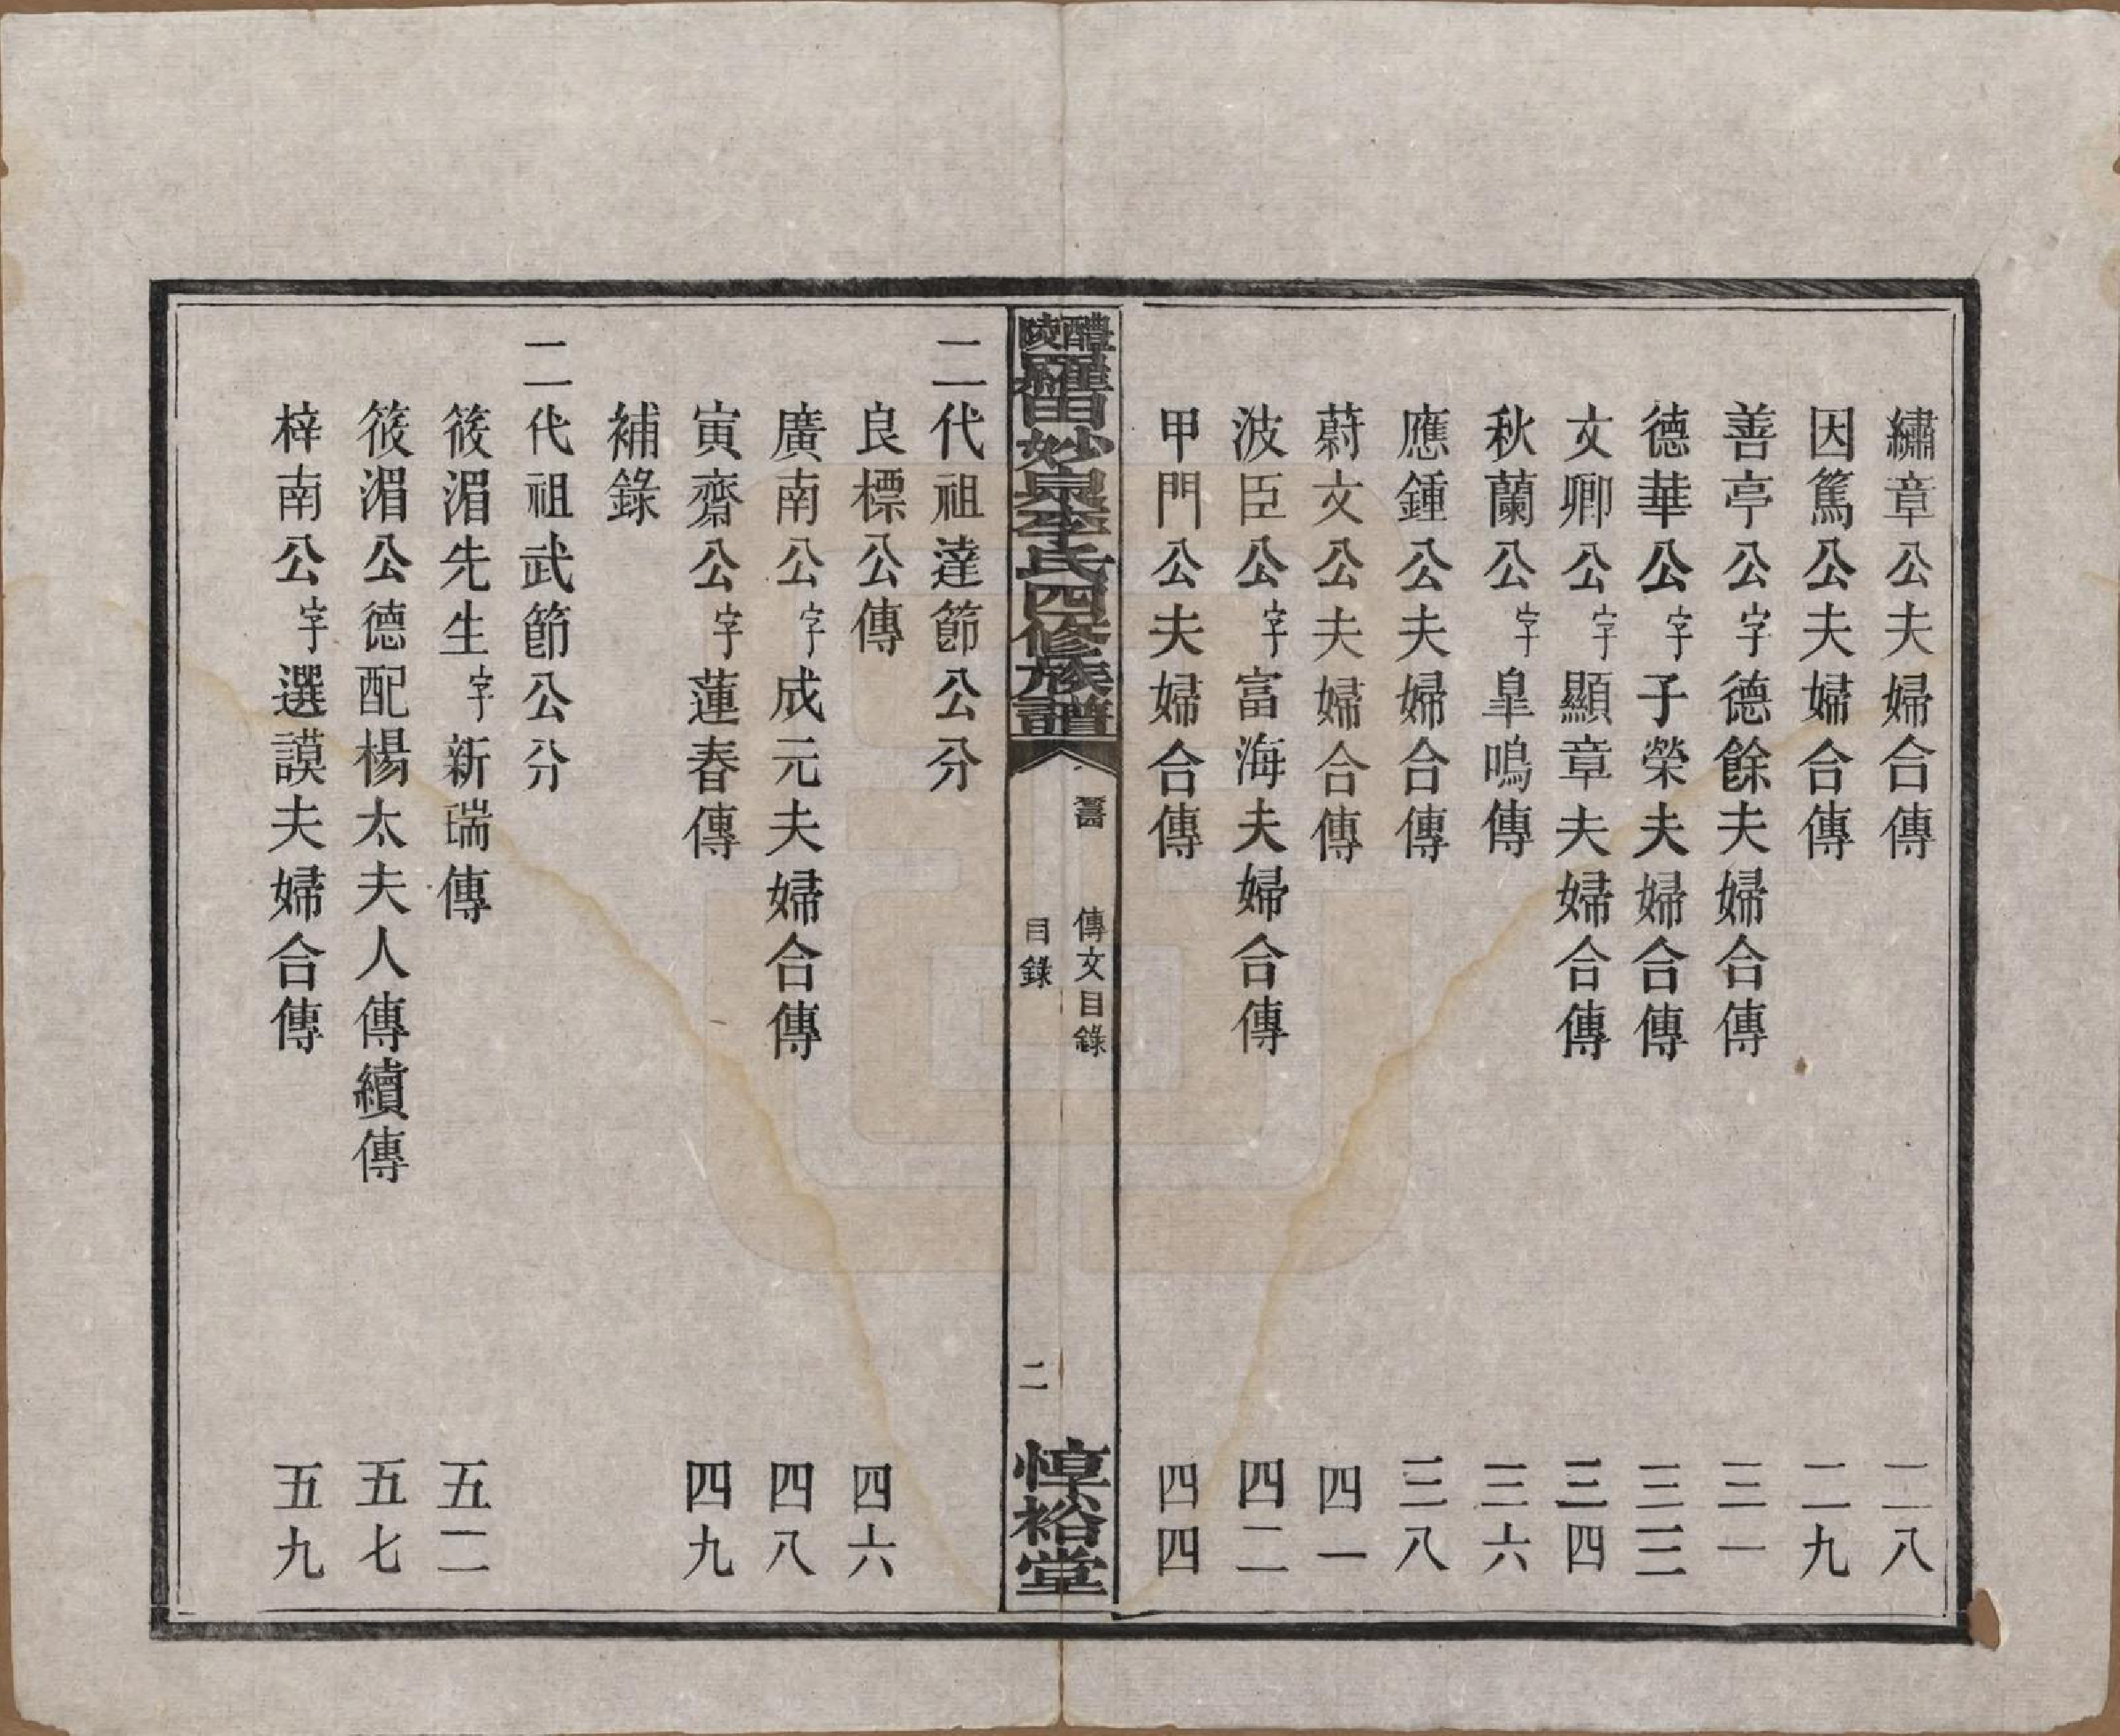 繡章公夫婦合傳 二八
因篤公夫婦合傳 二九
善亭公字德餘夫婦合傳 三一
德華公字子榮夫婦合傳 三三
文卿公字顯章夫婦合傳 三四
秋蘭公字皐鳴傳 三六
應鍾公夫婦合傳 三八
蔚文公夫婦合傳 四一
波臣公字富海夫婦合傳 四二
甲門公夫婦合傳 四四
醴陵羅田妙泉李氏四修族譜
傳文目錄
目錄
二
惇裕堂
二代祖達節公分
良標公傳 四六
廣南公字成元夫婦合傳 四八
寅齋公字蓮春傳 四九
補錄
二代祖武節公分
筱湄先生字新瑞傳 五二
筱湄公德配楊太夫人傳續傳 五七
梓南公字選謨夫婦合傳 五九